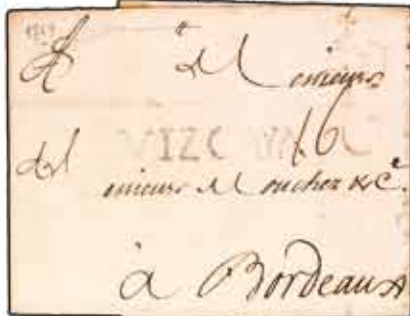 1769
A Messieurs
VIZCAYA 16
Messieurs Moucher & Ce.
à Bordeaux